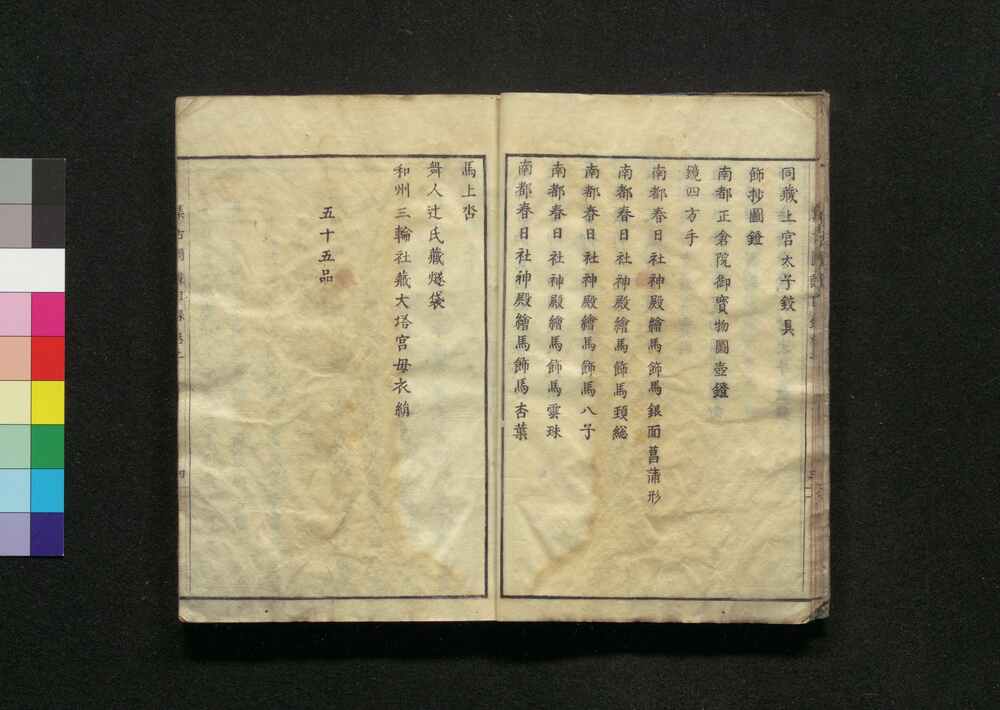 同藏上官太子鉸具
飾抄圖鐙
南都正倉院御寳物圖壺鐙
鏡四方手
南都春日社神殿繪馬飾馬銀面菖蒲形
南都春日社神殿繪馬飾馬頚総
南都春日社神殿繪馬飾馬八子
南都春日社神殿繪馬飾馬雲珠
南都春日社神殿繪馬飾馬杏葉
馬上沓
舞人辻氏藏燧袋
和州三輪社藏大塔宮母衣絹
五十五品
集古
四